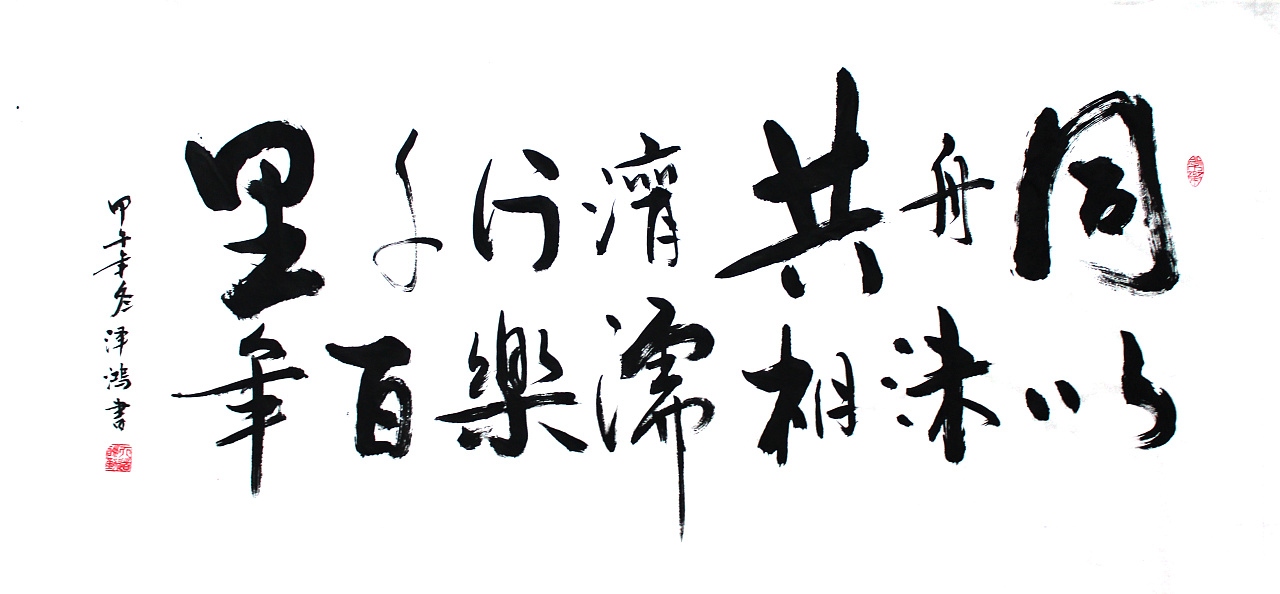 同舟共濟行千里
以沫相濡樂百年
甲午年冬津鴻書